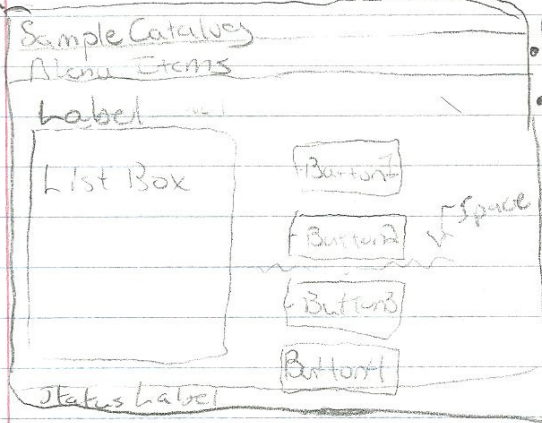 Sample Catalog
Menu Items
Label
List Box
Button1
Button2
Space
Button3
Button4
Status Label